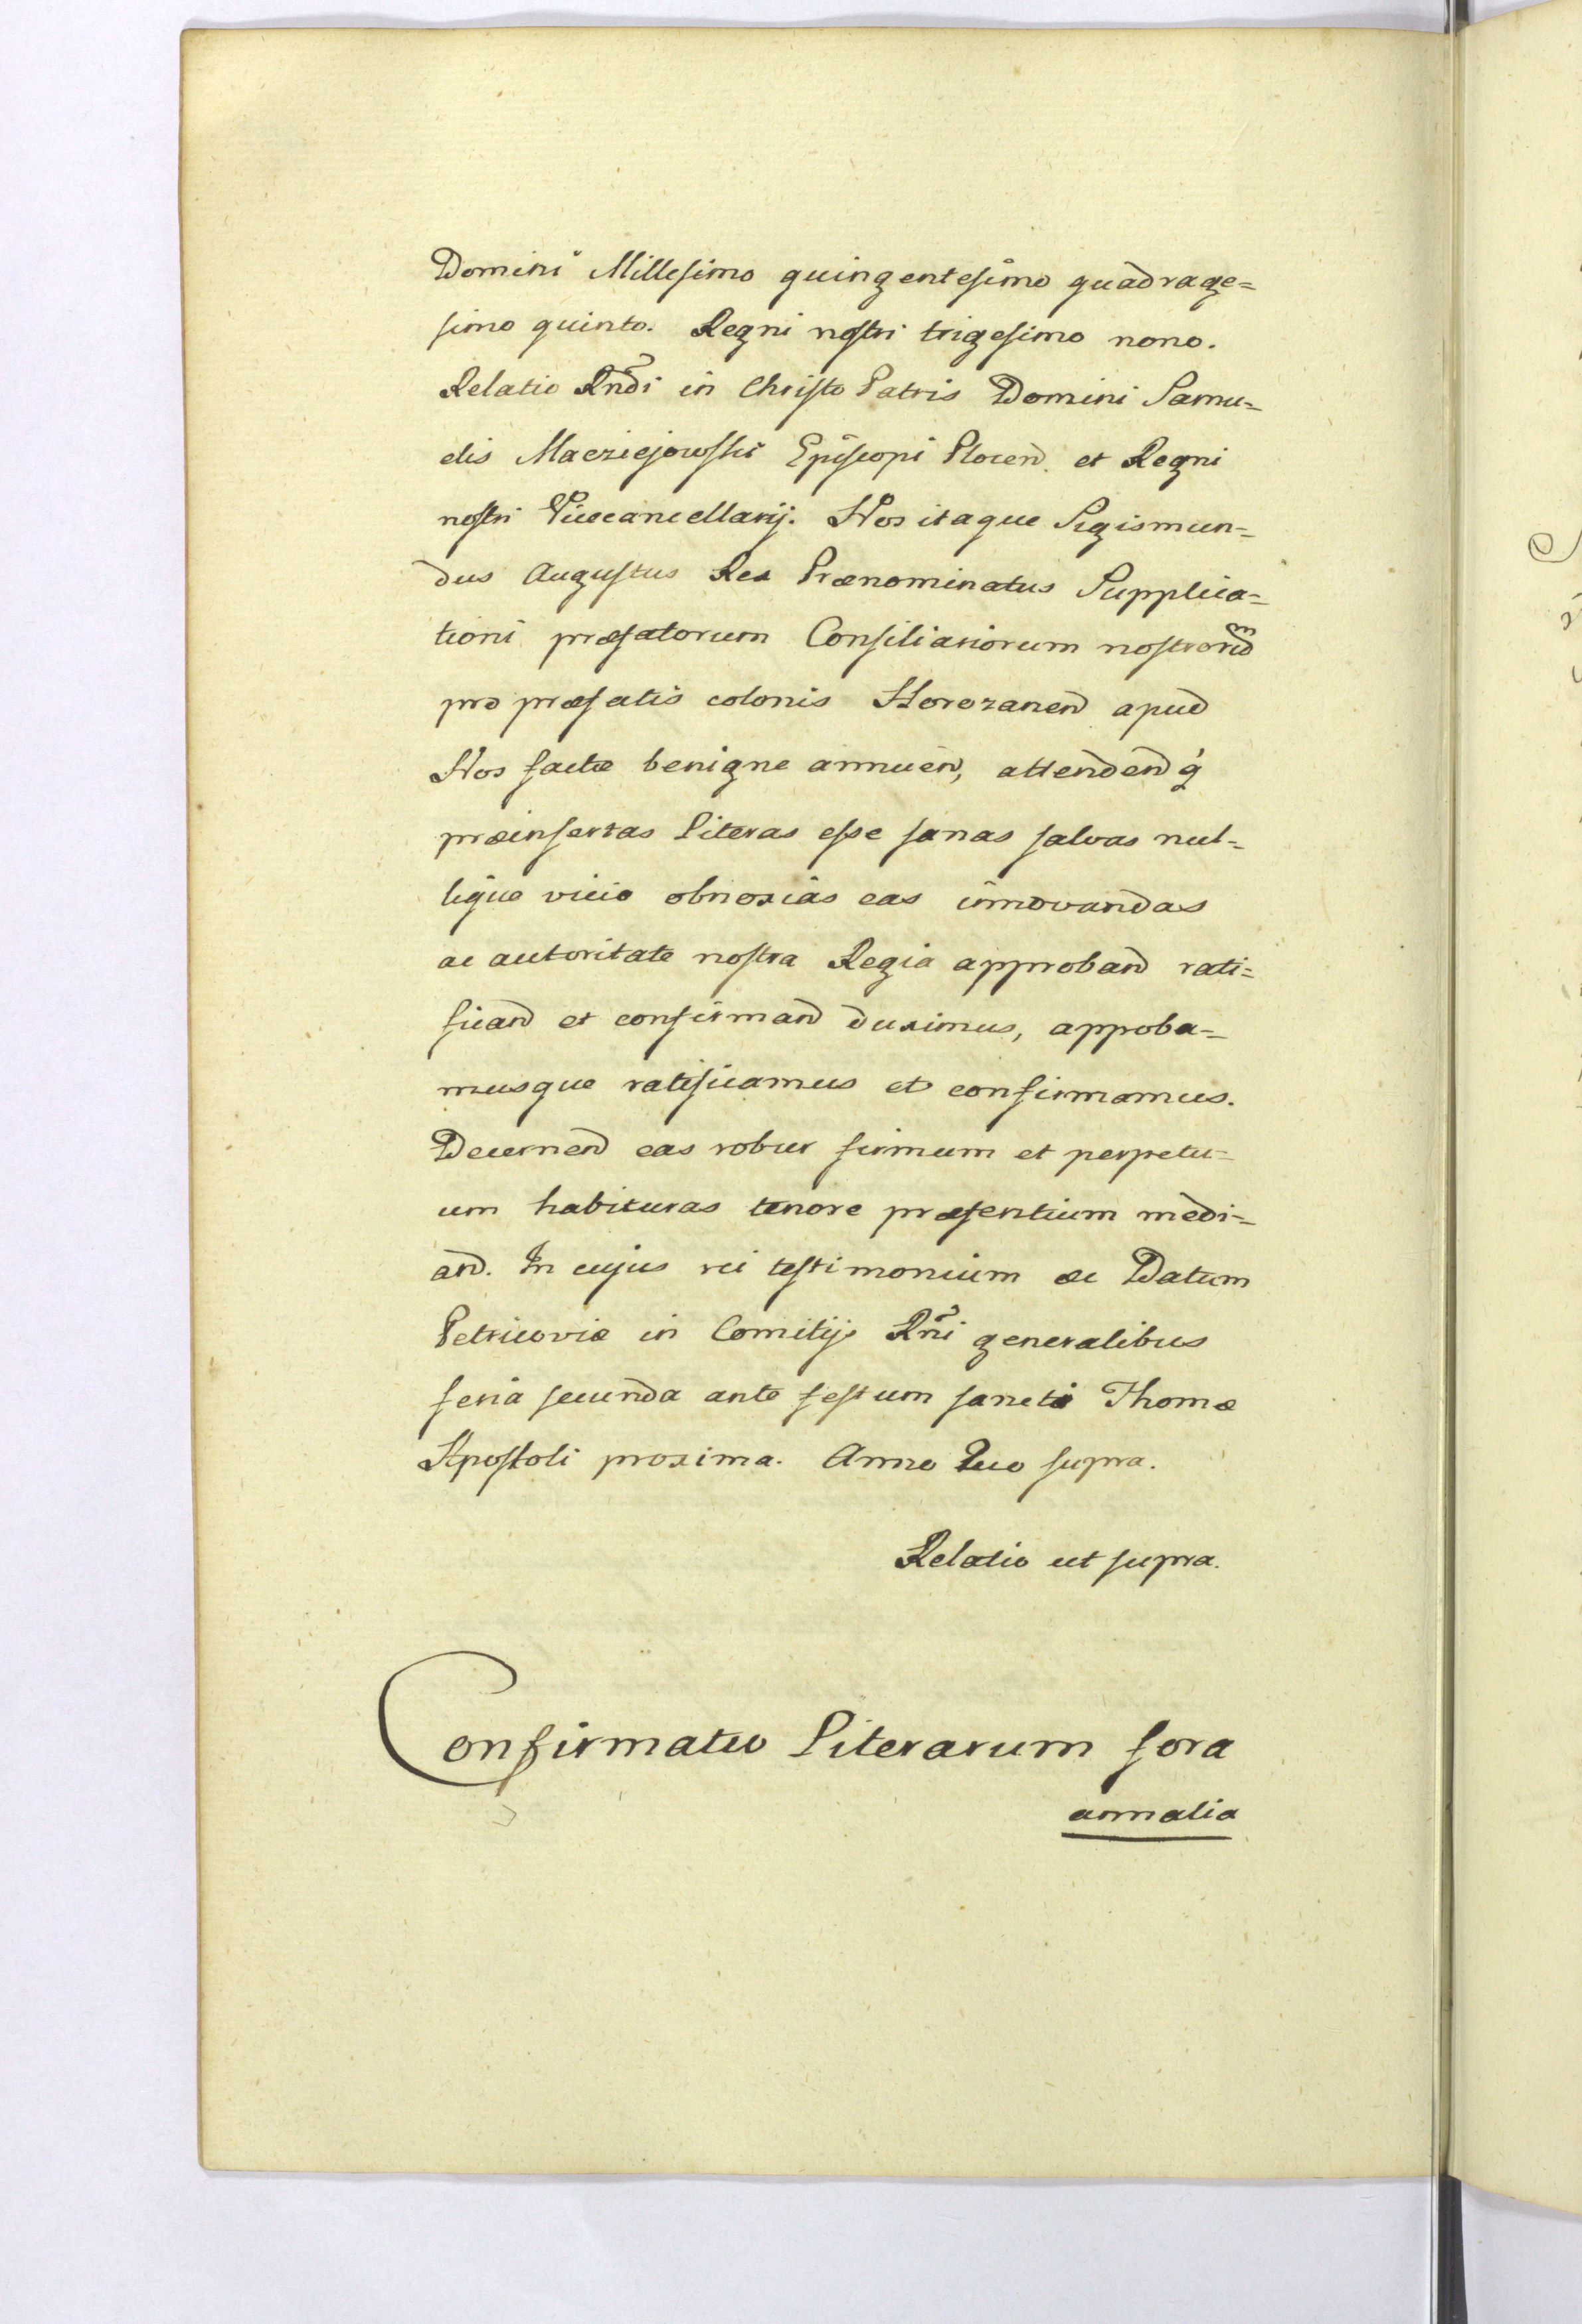 Domini Millesimo quingentesimo quadrage=
simo quinto. Regni nostri trigesimo nono.
Relatio Rñdi in Christo Patris Domini Samu=
elis Macziejowski Episcopi Plocen̄. et Regni
nostri Vicecancellarij. Nos itaque Sigismun=
dus Augustus Rex Prænominatus Supplica=
tioni præfatorum Consiliariorum nostrorum
pro præfatis colonis Horozanen̄ apud
Nos factæ benigne annuen̄, attenden̄ q̇
præinsertas Literas esse sanas salvas nul=
lique vicio obnoxias eas innovandas
ac autoritate nostra Regia approban̄d rati=
fican̄d et confirman̄d duximus, approba=
musque ratificamus et confirmamus.
Decernen̄d eas robur firmum et perpetu=
um habituras tenore præsentium medi=
an̄. In cujus rei testimonium &c Datum
Petricoviæ in Comitijs Rñi generalibus
feria secunda ante festum sancti Thomæ
Apostoli proxima. Anno Quo supra.
Relatio ut supra.
Confirmatio Literarum fora
annalia